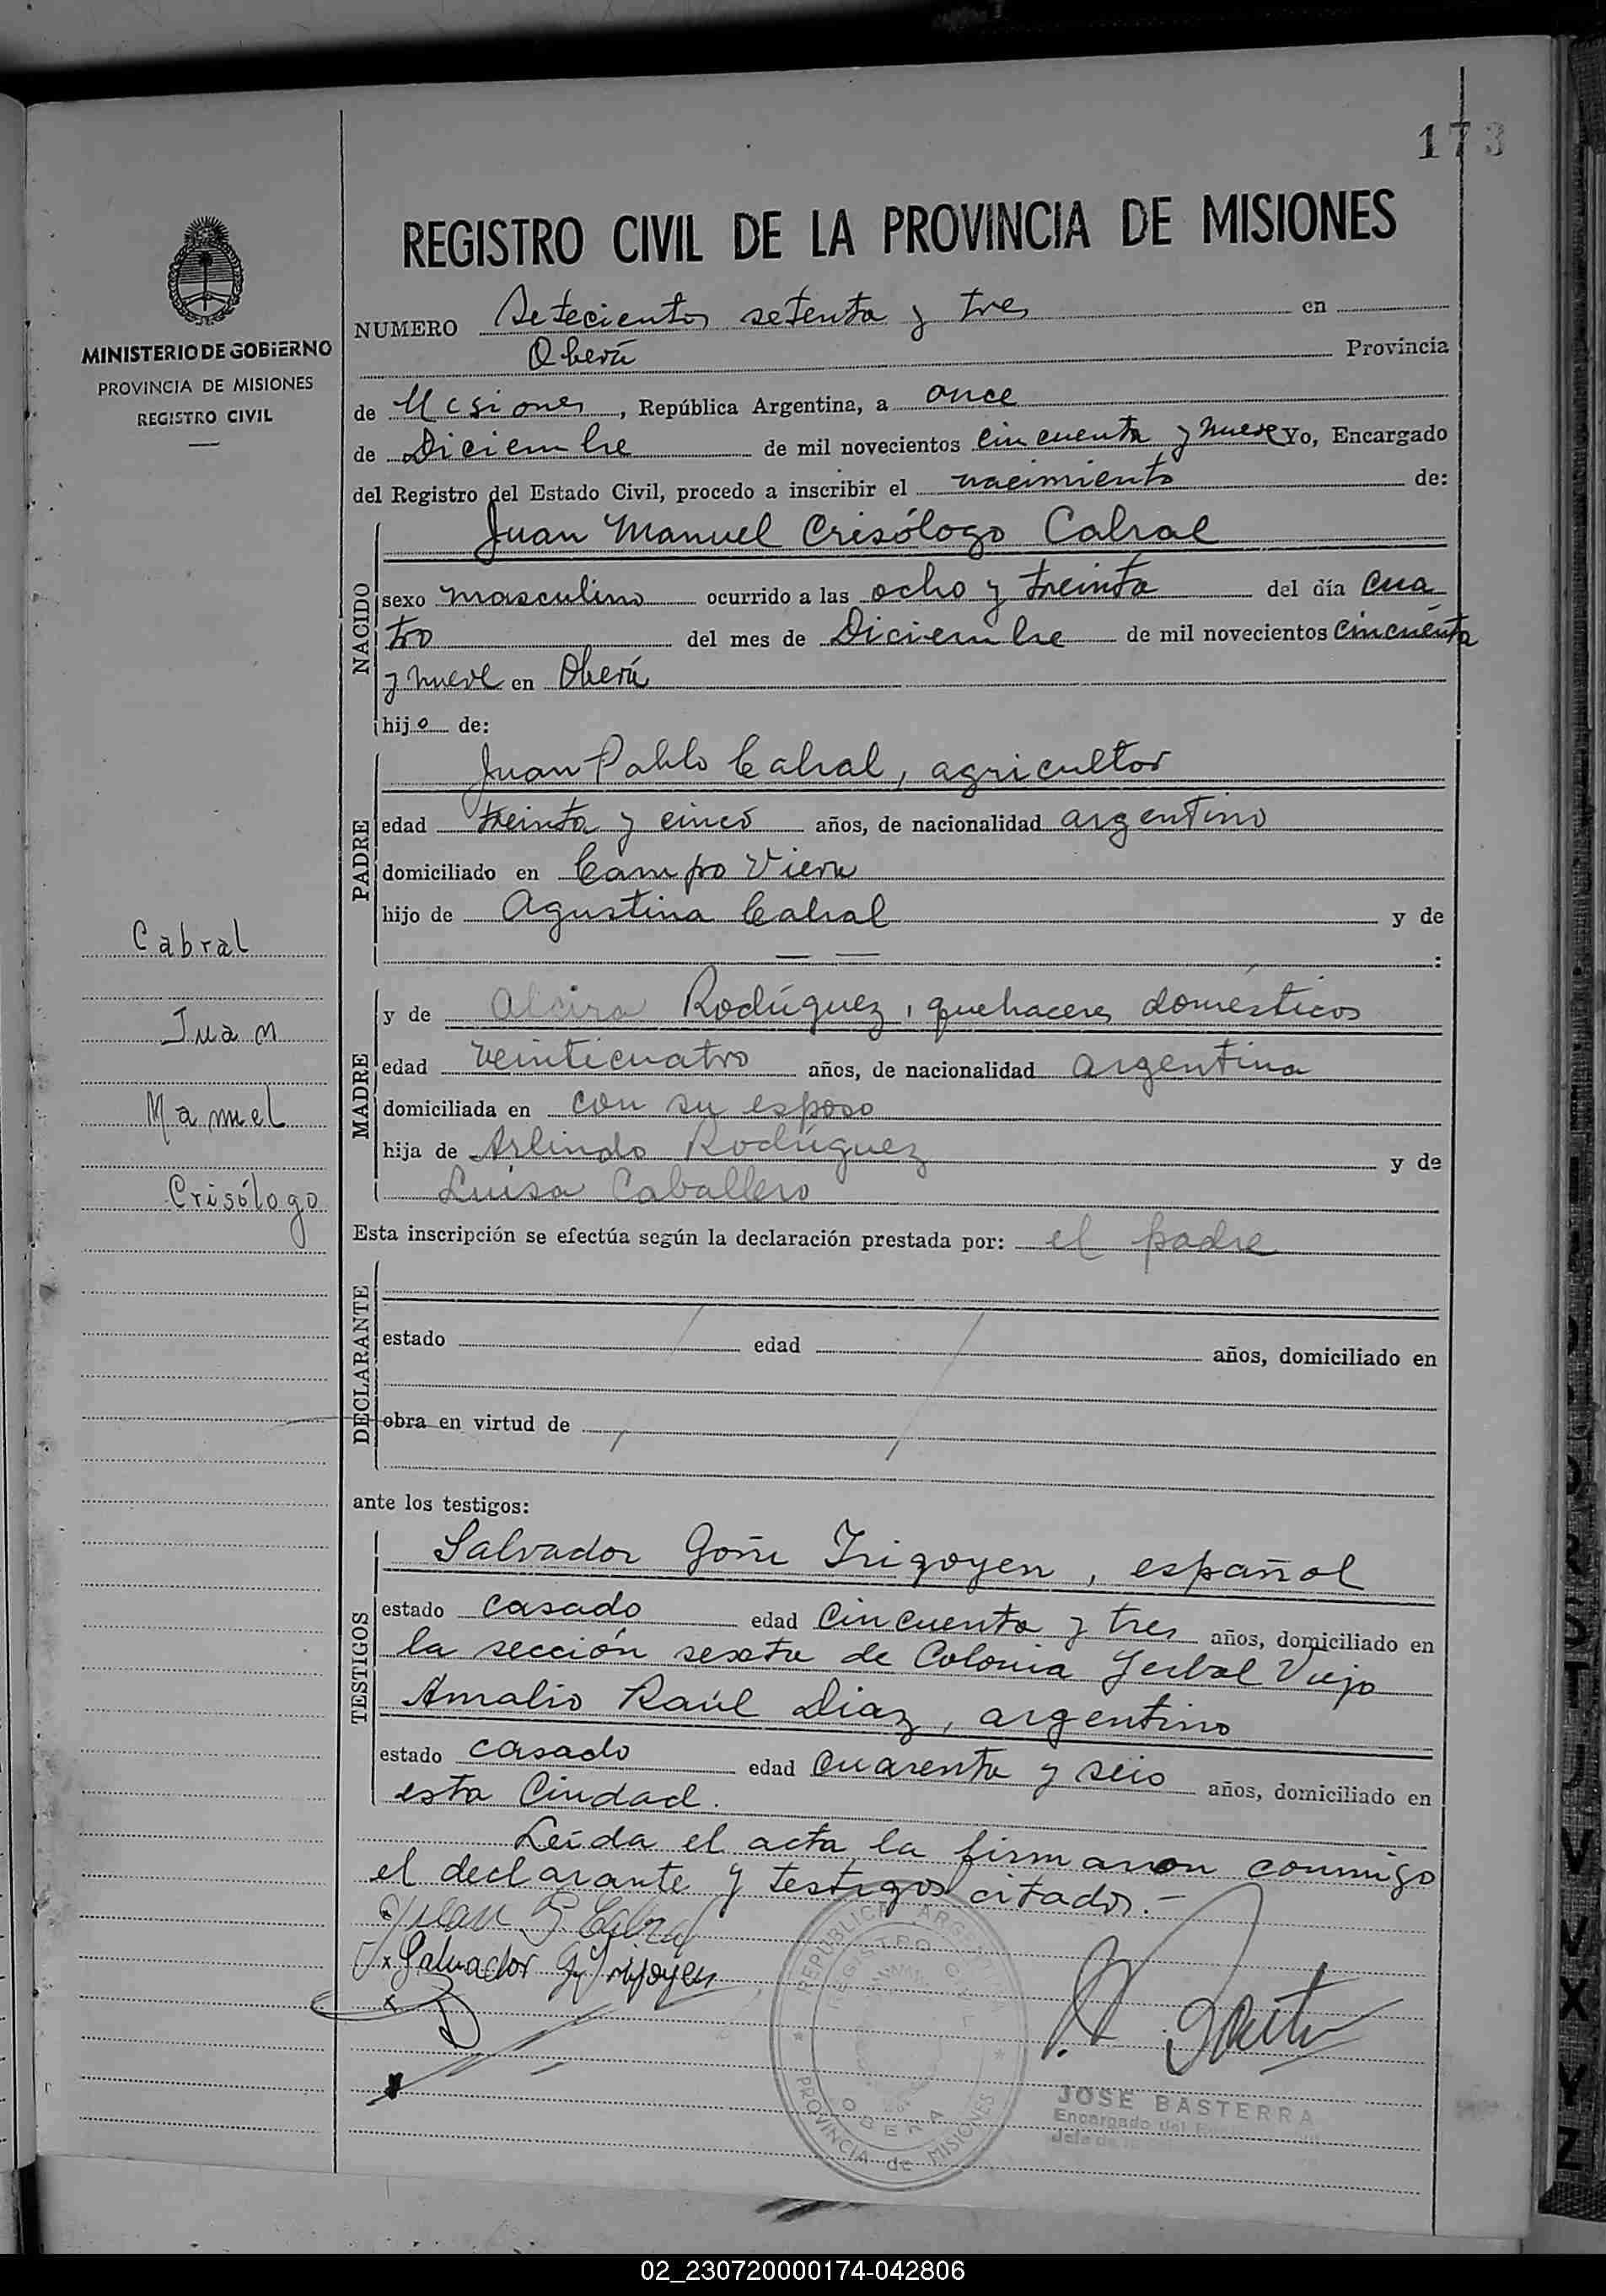 173
REGISTRO CIVIL DE LA PROVINCIA DE MISIONES
MINISTERIO DE GOBIERNO
PROVINCIA DE MISIONES
REGISTRO CIVIL
NUMERO Setecientos setenta y tres en
Oberá Provincia
de Misiones, República Argentina, a once
de Diciembre de mil novecientos cincuenta y nueve Yo, Encargado
del Registro del Estado Civil, procedo a inscribir el nacimiento de:
NACIDO
Juan Manuel Crisólogo Cabral
sexo masculino ocurrido a las ocho y treinta del día cua
tro del mes de Diciembre de mil novecientos cincuenta
y nueve en Oberá
hijo de:
PADRE
Juan Pablo Cabral, agricultor
edad treinta y cinco años, de nacionalidad argentino
domiciliado en Campo Viera
hijo de Agustina Cabral y de
— — :
Cabral
Juan
Manuel
Crisólogo
MADRE
y de Alcira Rodríguez, quehaceres domésticos
edad veinticuatro años, de nacionalidad argentina
domiciliada en con su esposo
hija de Arlindo Rodríguez y de
Luisa Caballero
Esta inscripción se efectúa según la declaración prestada por: el padre
DECLARANTE
estado edad años, domiciliado en
obra en virtud de
ante los testigos:
TESTIGOS
Salvador Goñi Irigoyen, español
estado casado edad cincuenta y tres años, domiciliado en
la sección sexta de Colonia Yerbal Viejo
Amalio Raúl Diaz, argentino
estado casado edad cuarenta y seis años, domiciliado en
esta Ciudad.
Leída el acta la firmaron conmigo
el declarante y testigos citados.-
Juan P. Cabral
Salvador G. Irigoyen
REPUBLICA ARGENTINA
REGISTRO CIVIL
OBERA
PROVINCIA de MISIONES
JOSE BASTERRA
Encargado del
Jefe de
02_230720000174-042806